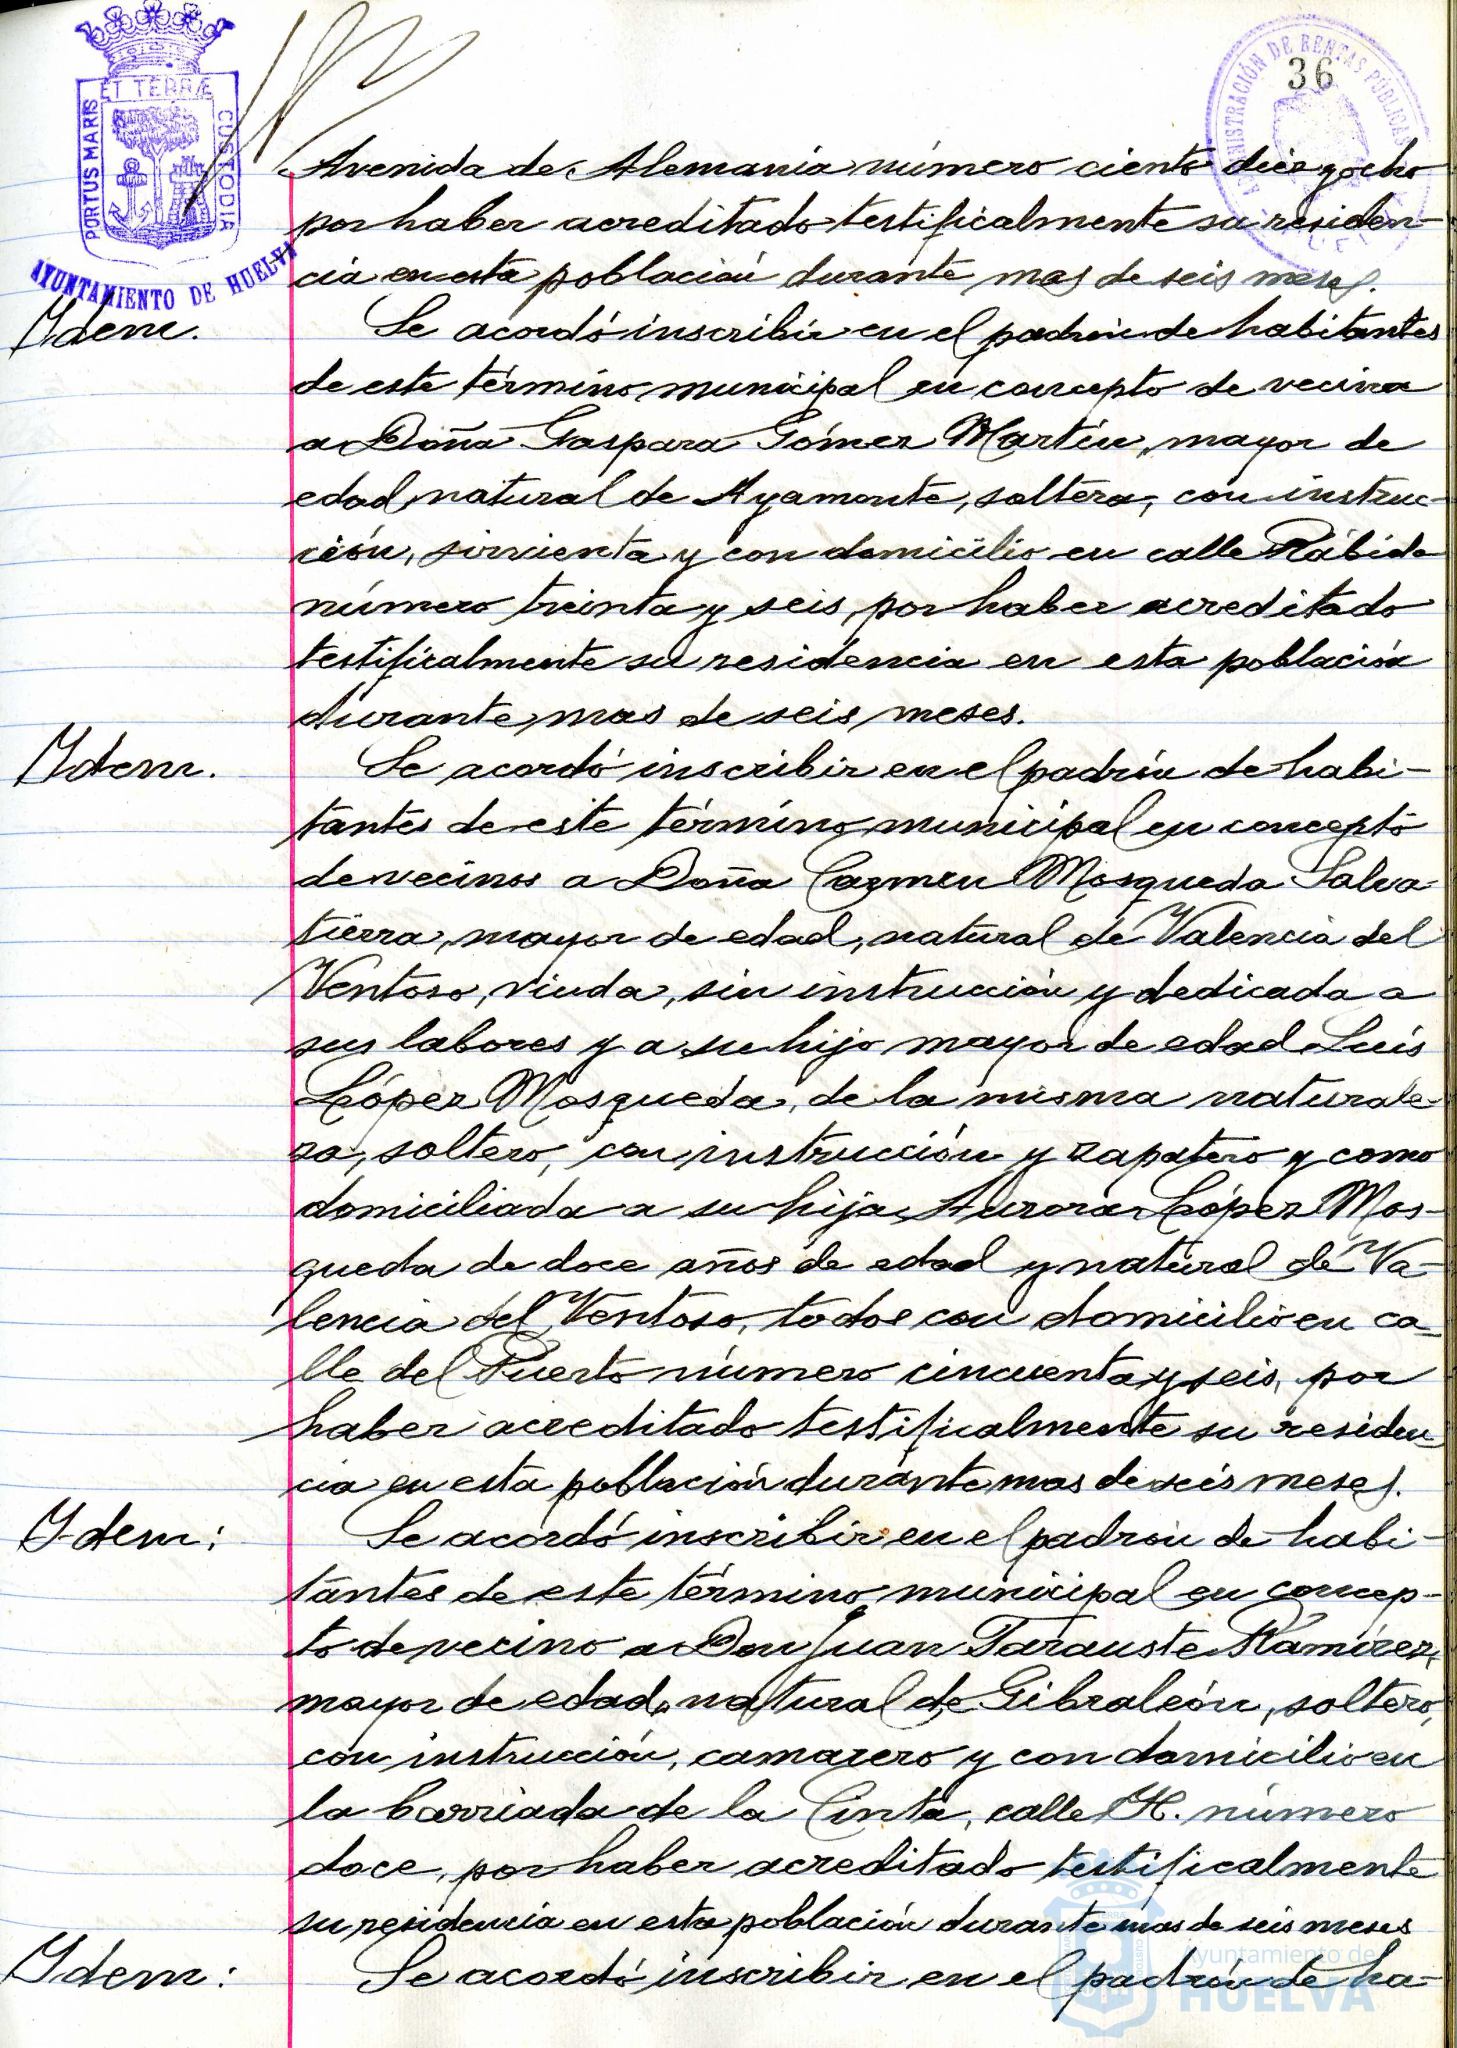 ET TERRÆ
PORTUS MARIS
CUSTODIA
AYUNTAMIENTO DE HUELVA
ADMINISTRACIÓN DE RENTAS PÚBLICAS
36
Avenida de Alemania número ciento diez y ocho
por haber acreditado testificalmente su residen-
cia en esta población durante mas de seis meses.
Idem.
Se acordó inscribir en el padrón de habitantes
de este término municipal en concepto de vecina
a Doña Gaspara Gómez Martín, mayor de
edad, natural de Ayamonte, soltera, con instruc-
ción, sirvienta y con domicilio en calle Rábida
número treinta y seis, por haber acreditado
testificalmente su residencia en esta población
durante mas de seis meses.
Idem.
Se acordó inscribir en el padrón de habi-
tantes de este término municipal en concepto
de vecinos a Doña Carmen Mosqueda Salva
tierra, mayor de edad, natural de Valencia del
Ventoso, viuda, sin instrucción y dedicada a
sus labores y a su hijo mayor de edad Luís
López Mosqueda, de la misma naturale-
za, soltero, con instrucción y zapatero y como
domiciliada a su hija Aurora López Mos-
queda de doce años de edad y natural de Va-
lencia del Ventoso, todos con domicilio en ca-
lle del Puerto número cincuenta y seis, por
haber acreditado testificalmente su residen
cia en esta población durante mas de seis meses.
Idem:
Se acordó inscribir en el padrón de habi-
tantes de este término municipal en concep-
to de vecino a Don Juan Farauste Ramírez,
mayor de edad, natural de Gibraleón, soltero,
con instrucción, camarero y con domicilio en
la barriada de la Cinta, calle H. número
doce, por haber acreditado testificalmente
su residencia en esta población durante mas de seis meses
Idem:
Se acordó inscribir en el padrón de ha-
Ayuntamiento de
HUELVA